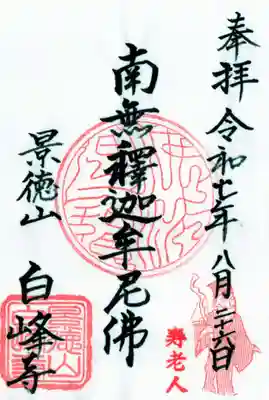 奉拝 令和七年八月二十六日
南無釋迦牟尼佛
景徳山
白峰寺
寿老人